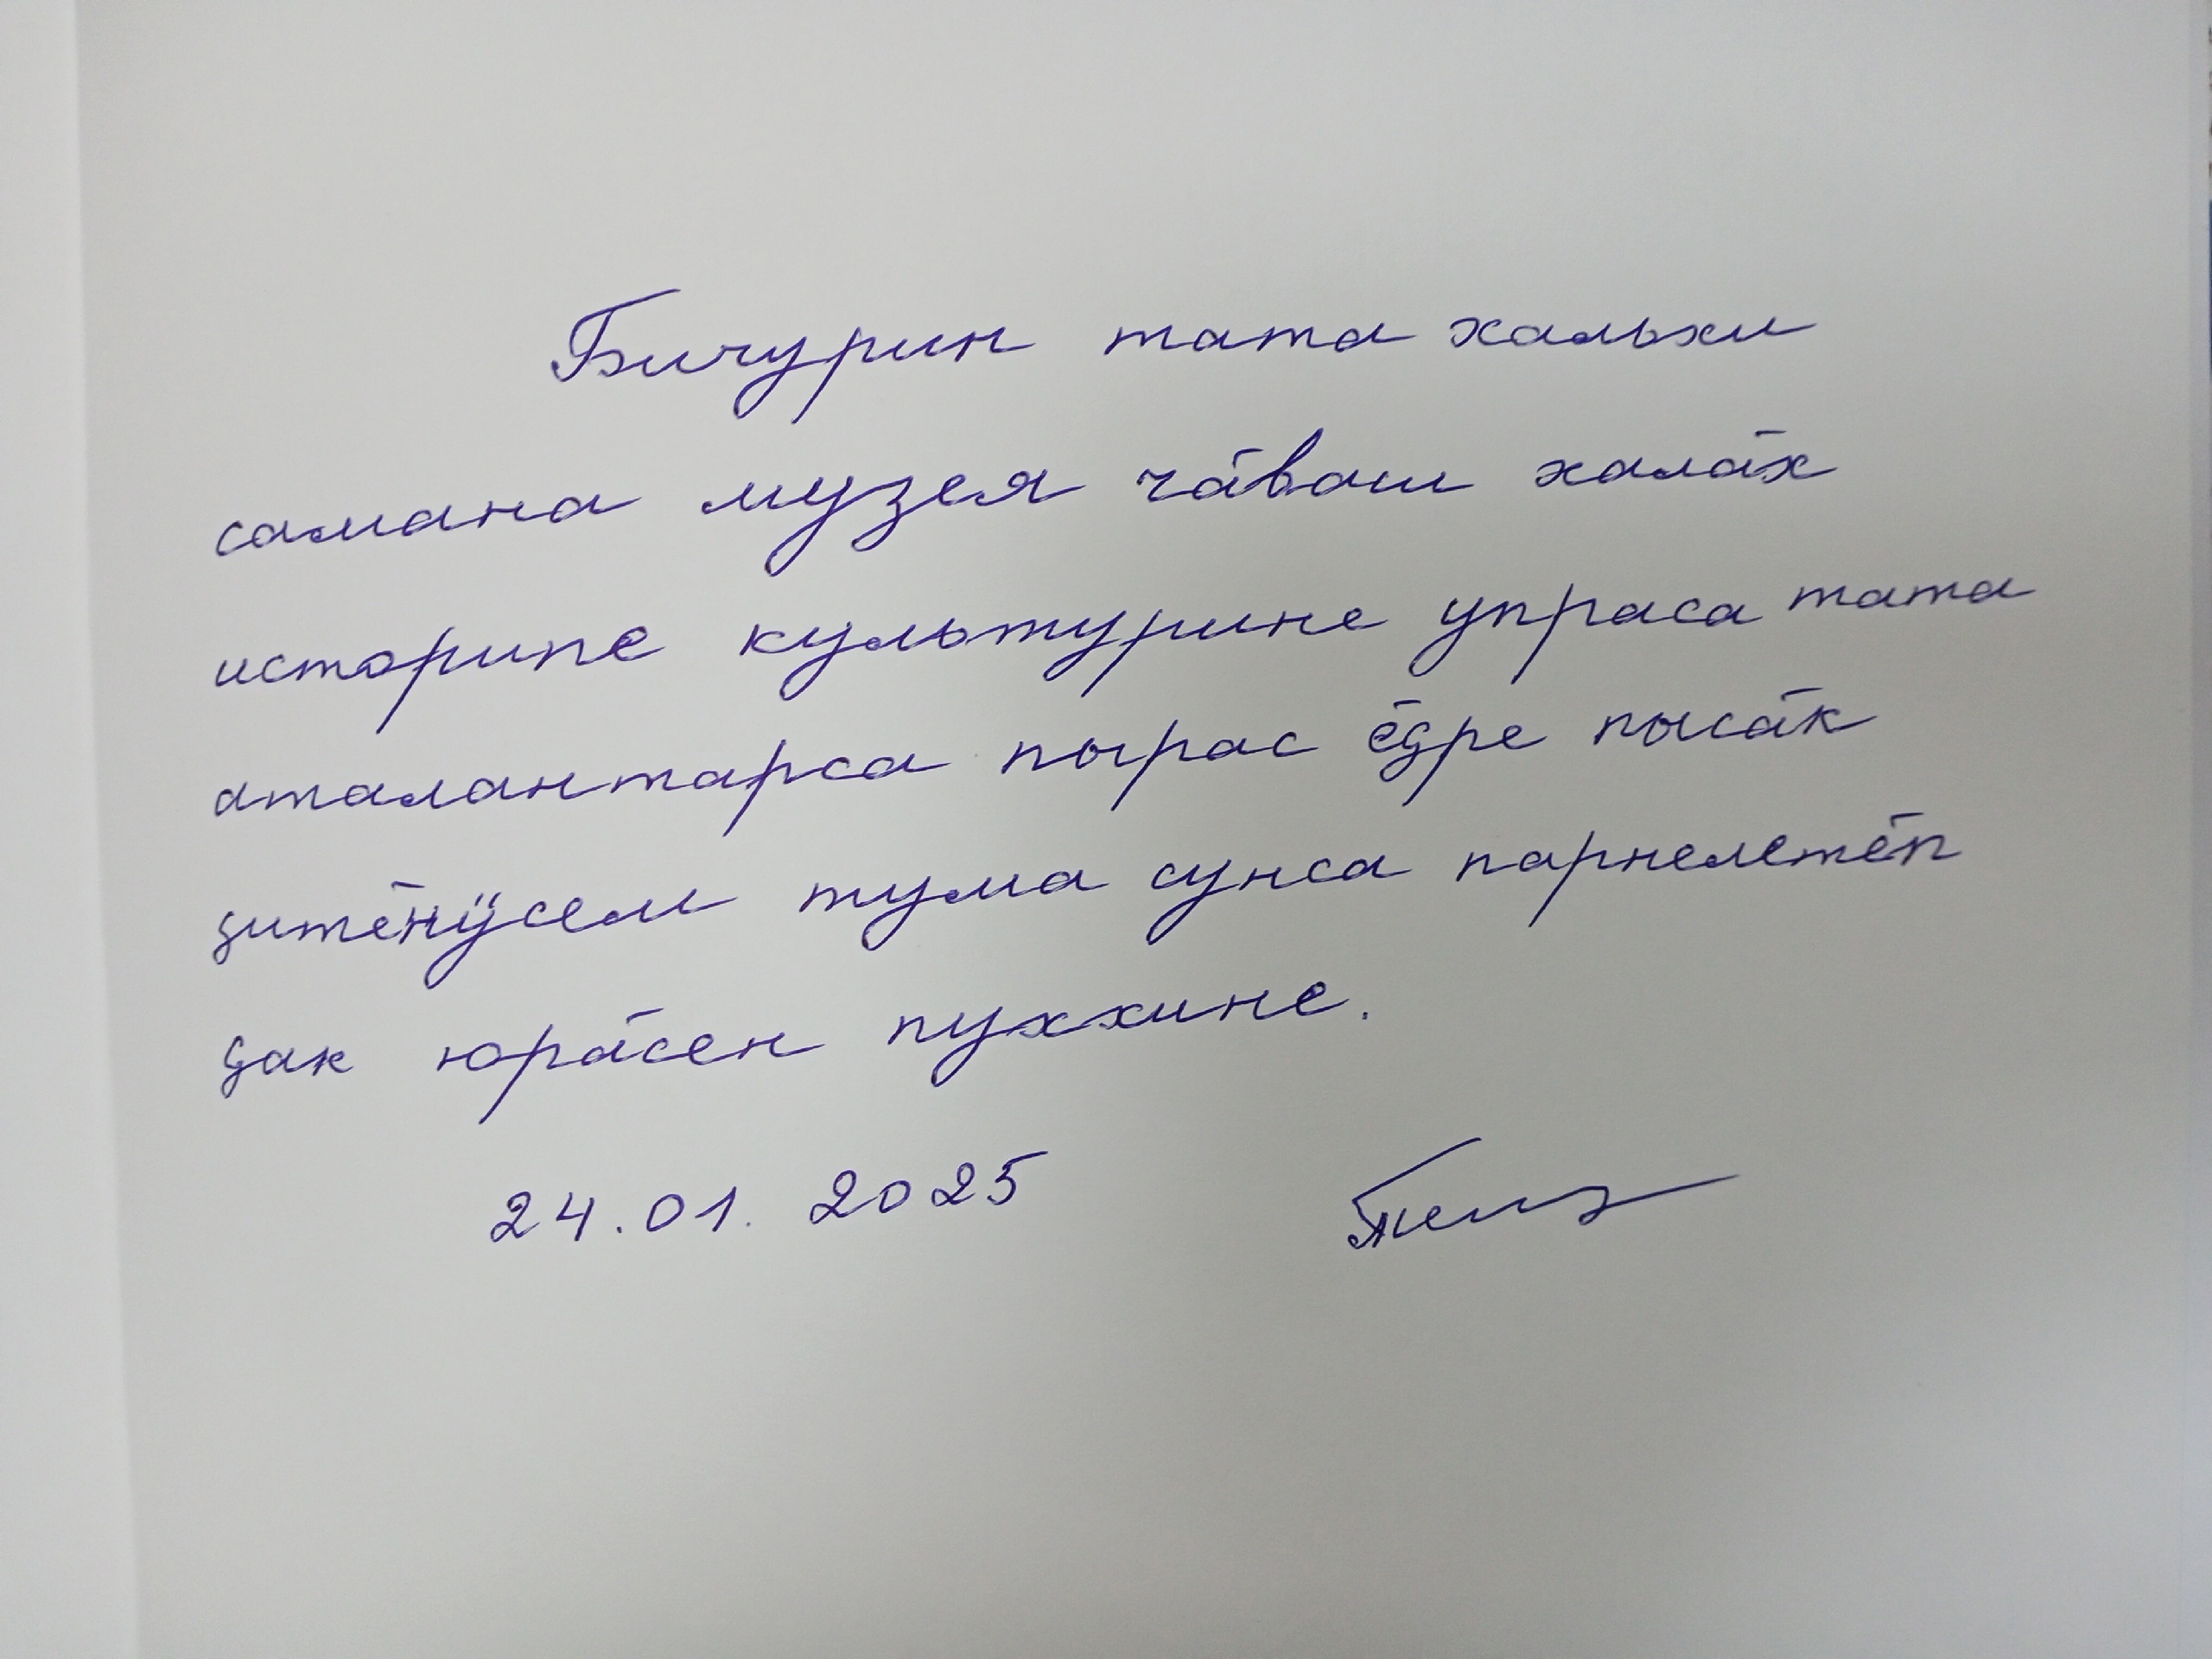 Бичурин тата хальхи
самана музея чӑваш халӑх
историпе культурине упраса тата
аталантарса пырас ӗҫре пысӑк
ҫитӗнӳсем тума сунса парнелетӗп
ҫак юрӑсен пуххине.
24.01.2025